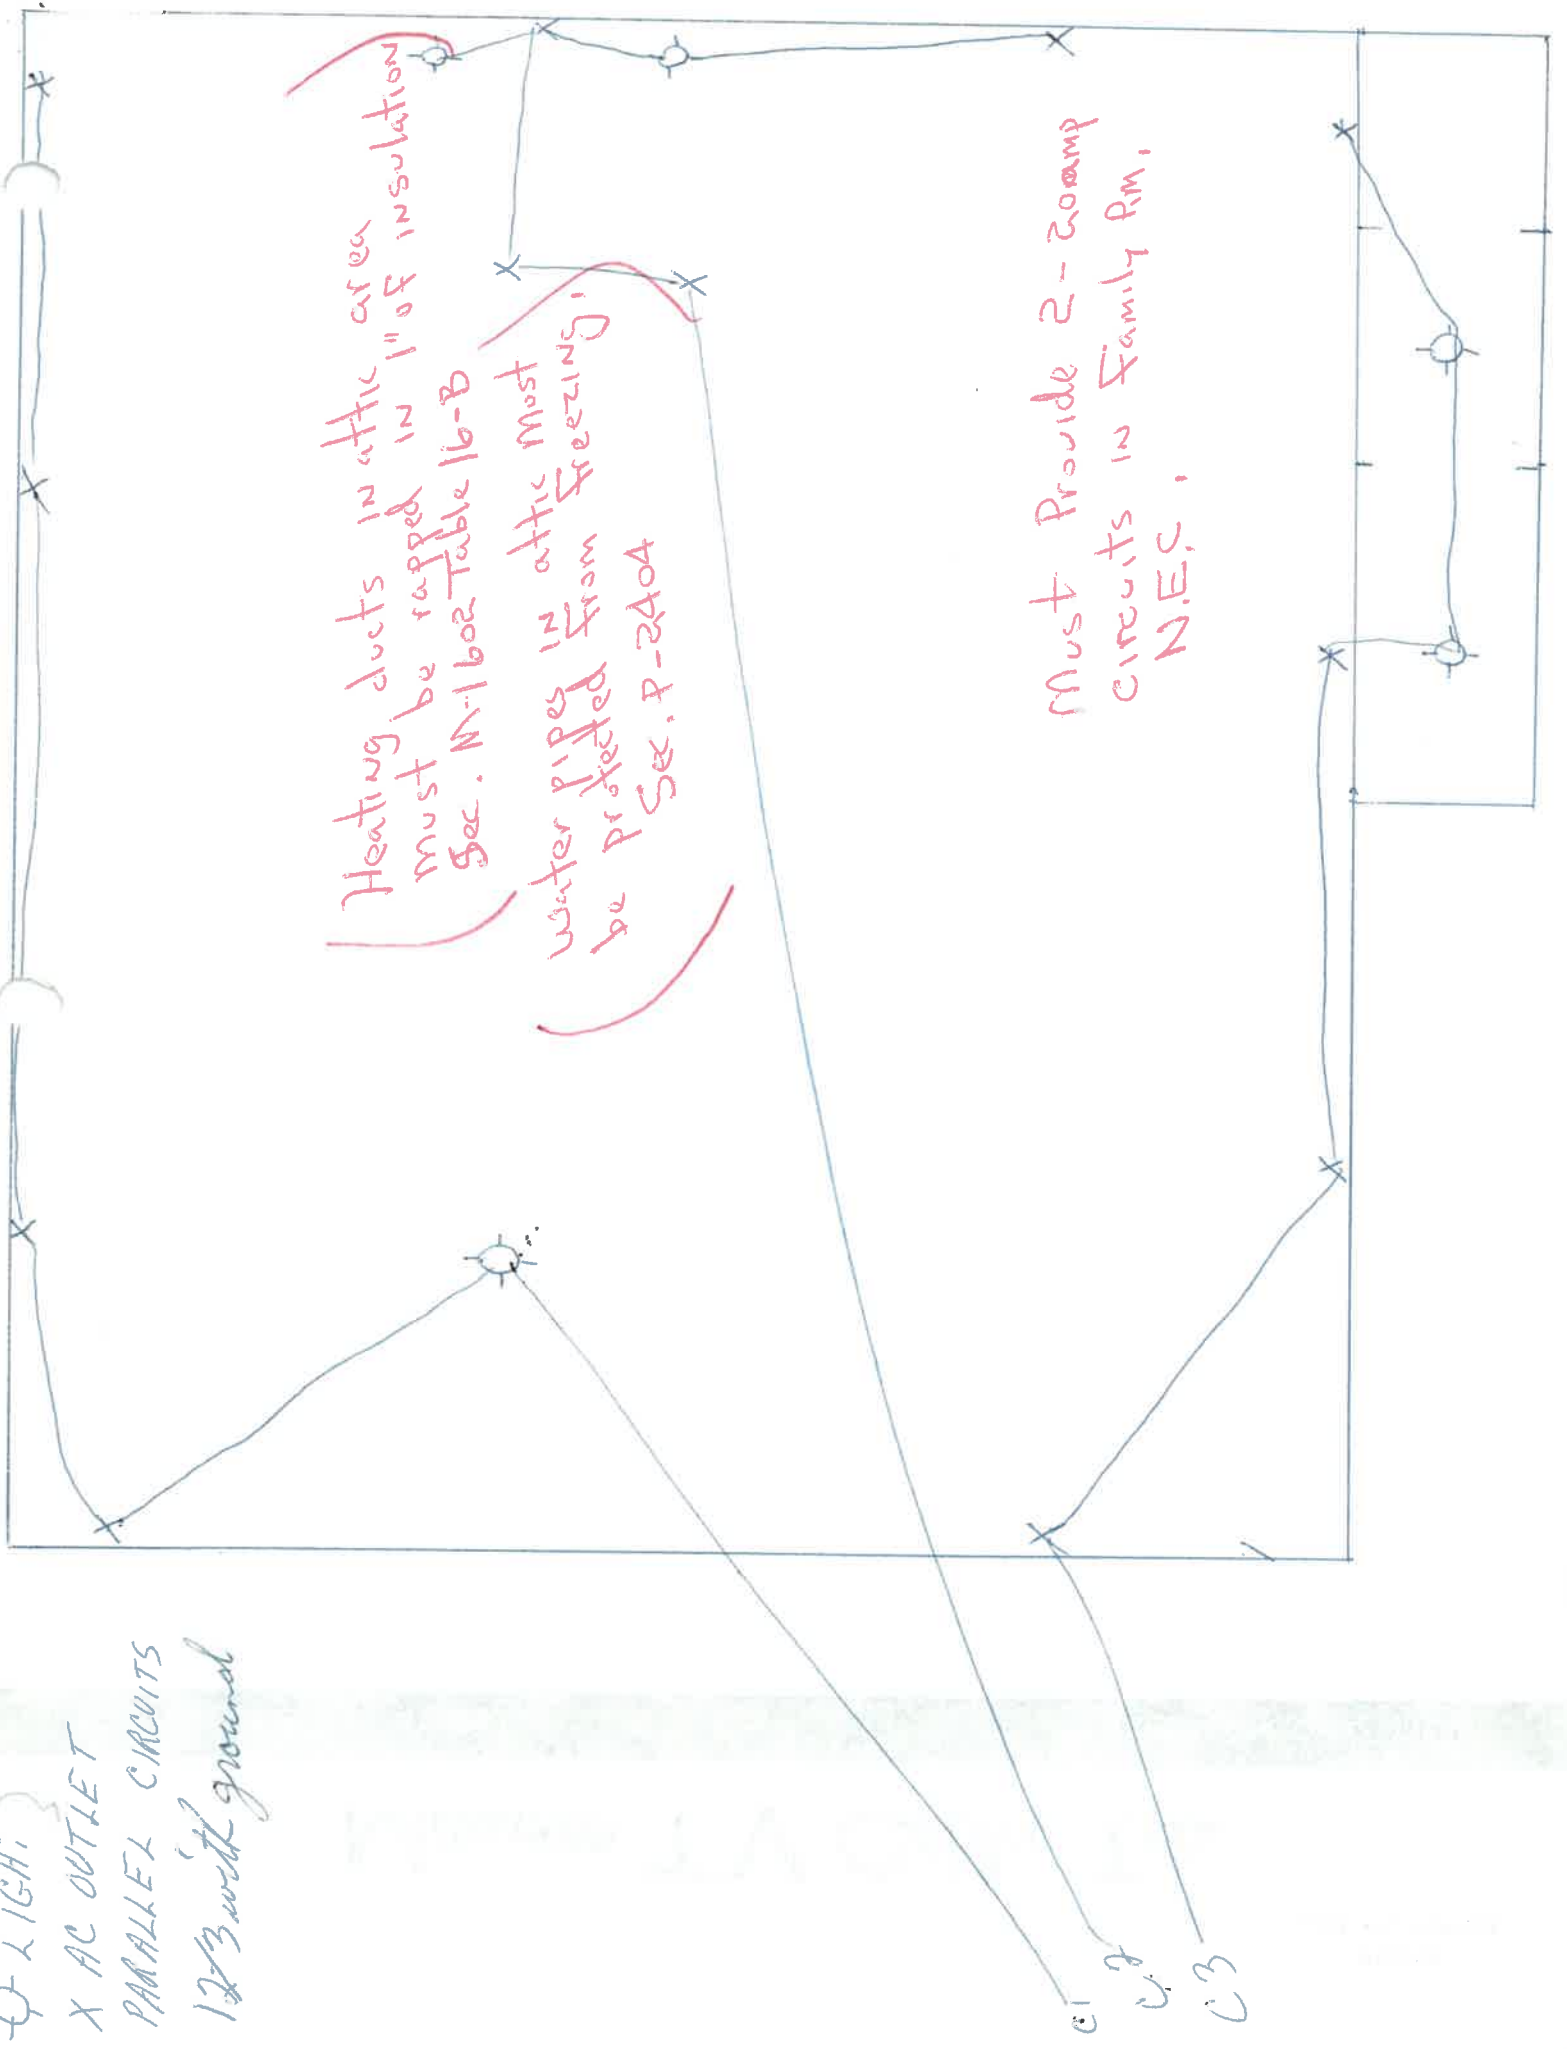 LIGHT
X AC OUTLET
PARALLEL CIRCUITS
with ground
Heating ducts in attic area
must be rapped in 1" of insulation
Sec. M-1602 Table 16-B
water pipes in attic most
be protected from freezing.
Sec. P-2404
Must Provide 2-20amp
circuits in Family Rm.
N.E.C.
C1
C2
C3